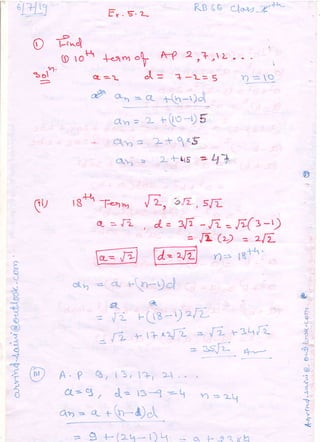 6/7/19
Ex. 5.2
RBSE Class X th
① Find
① 10th term of AP 2, 7, 12 ...
Sol n.
a = 2 d = 7 - 2 = 5 n = 10
an = a + (n-1)d
an = 2 + (10-1)5
an = 2 + 9×5
an = 2 + 45 = 47
(ii) 18th Term √2, 3√2, 5√2
a = √2, d = 3√2 - √2 = √2(3-1)
= √2 (2) = 2√2
a = √2 d = 2√2 n = 18th.
an = a + (n-1)d
= √2 + (18-1) 2√2
= √2 + 17×2√2 = √2 + 34√2
= 35√2
(iii) A.P 9, 13, 17, 21 ...
a = 9, d = 13 - 9 = 4 n = 24
an = a + (n-1)d
= 9 + (24-1)4